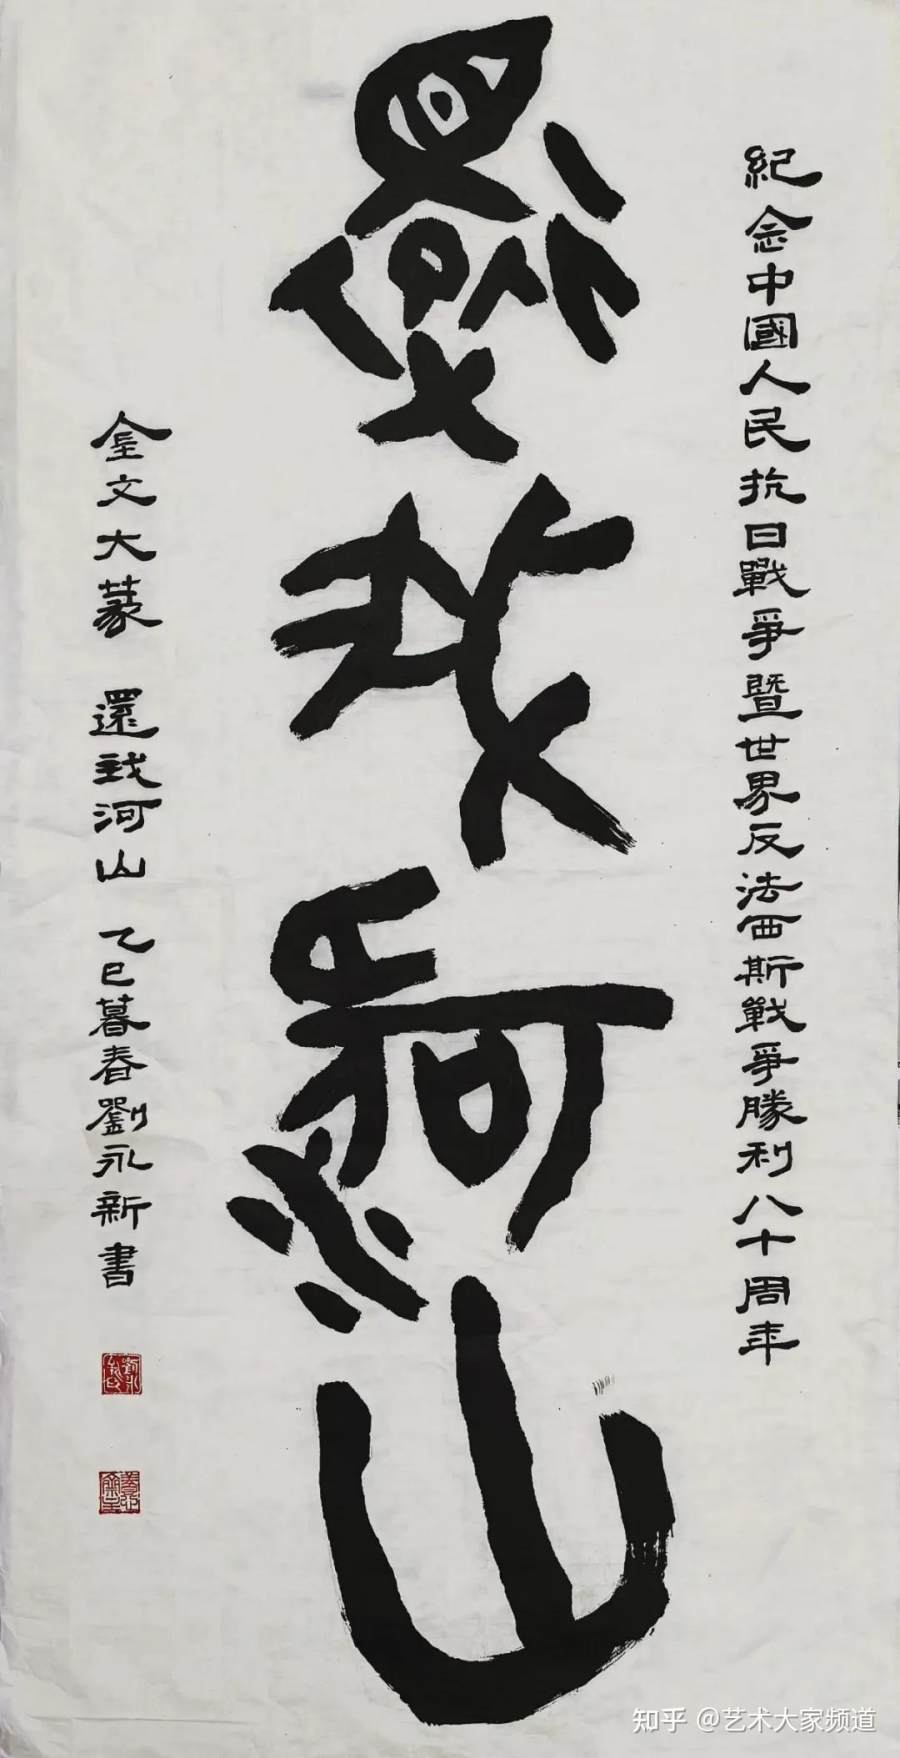 紀念中國人民抗日戰爭暨世界反法西斯戰爭勝利八十周年
還我河山
金文大篆 還我河山 乙巳暮春劉永新書
知乎 @艺术大家频道